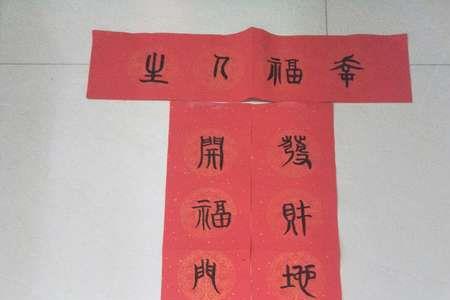 幸福人生
發財地
開福門